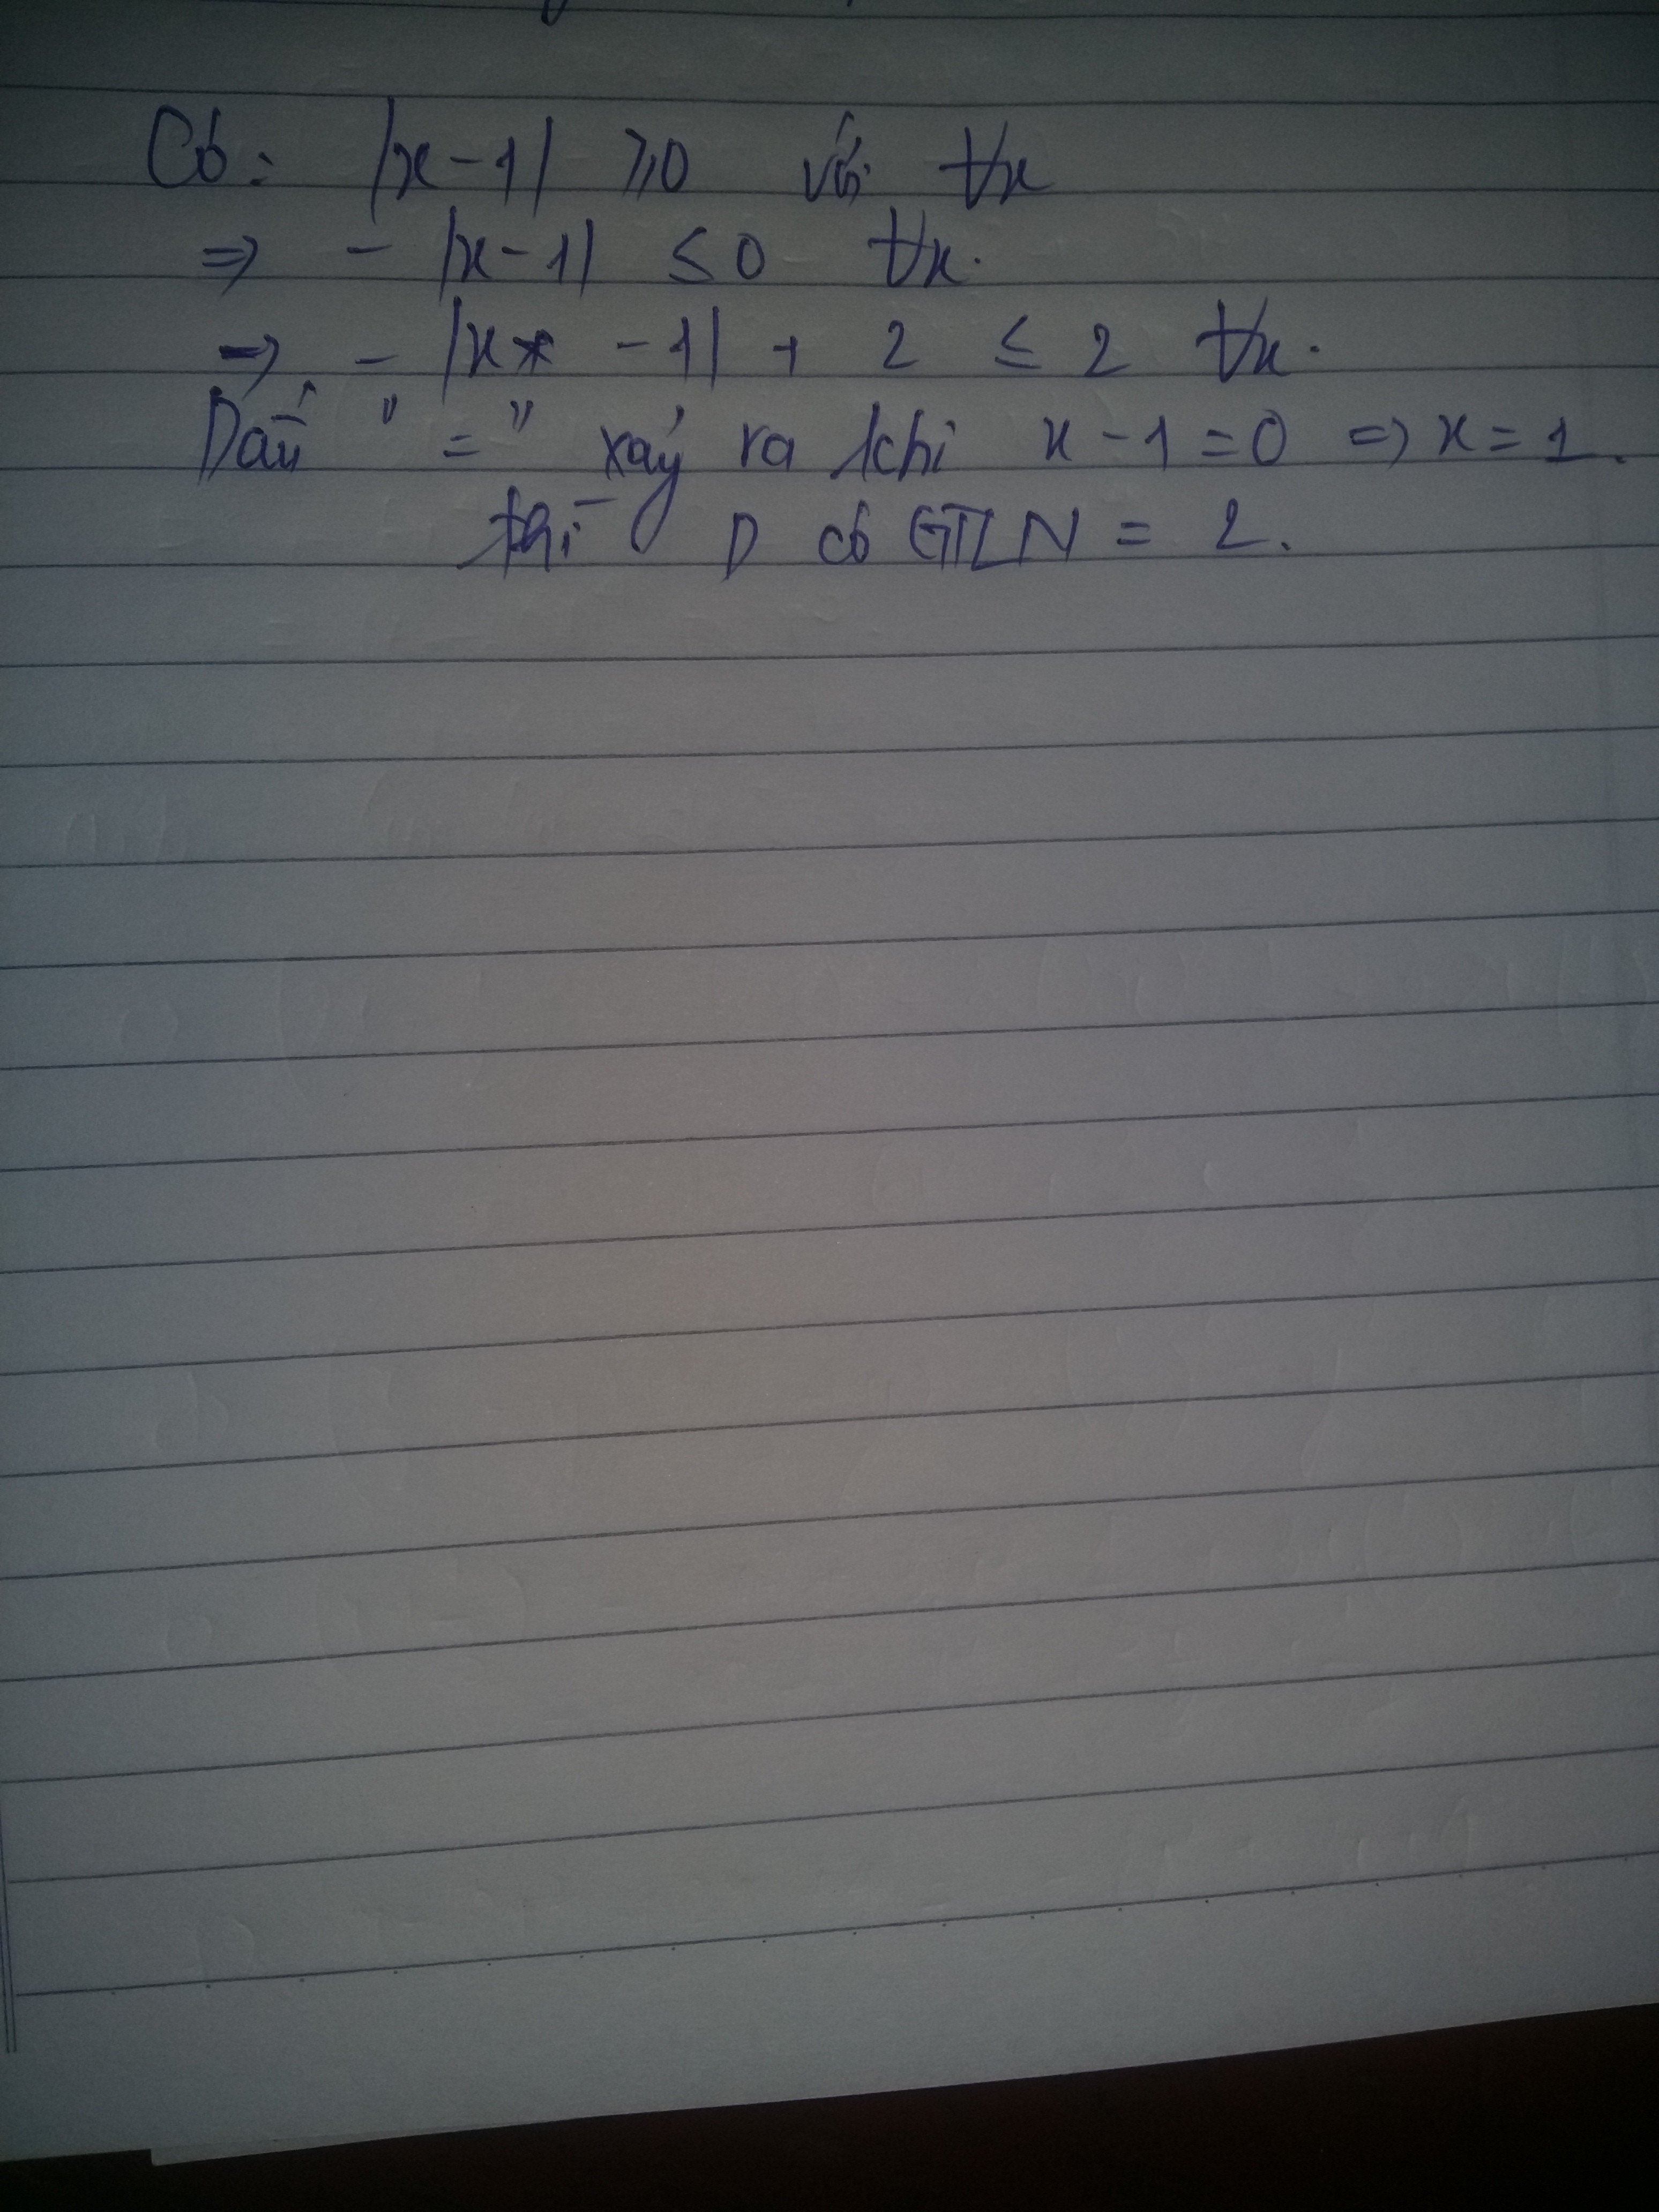 Có: |x-1| ≥0 với ∀x
=> - |x-1| ≤ 0 ∀x.
=> - |x -1| + 2 ≤ 2 ∀x.
Dấu "=" xảy ra khi x-1=0 => x=1.
thì D có GTLN = 2.